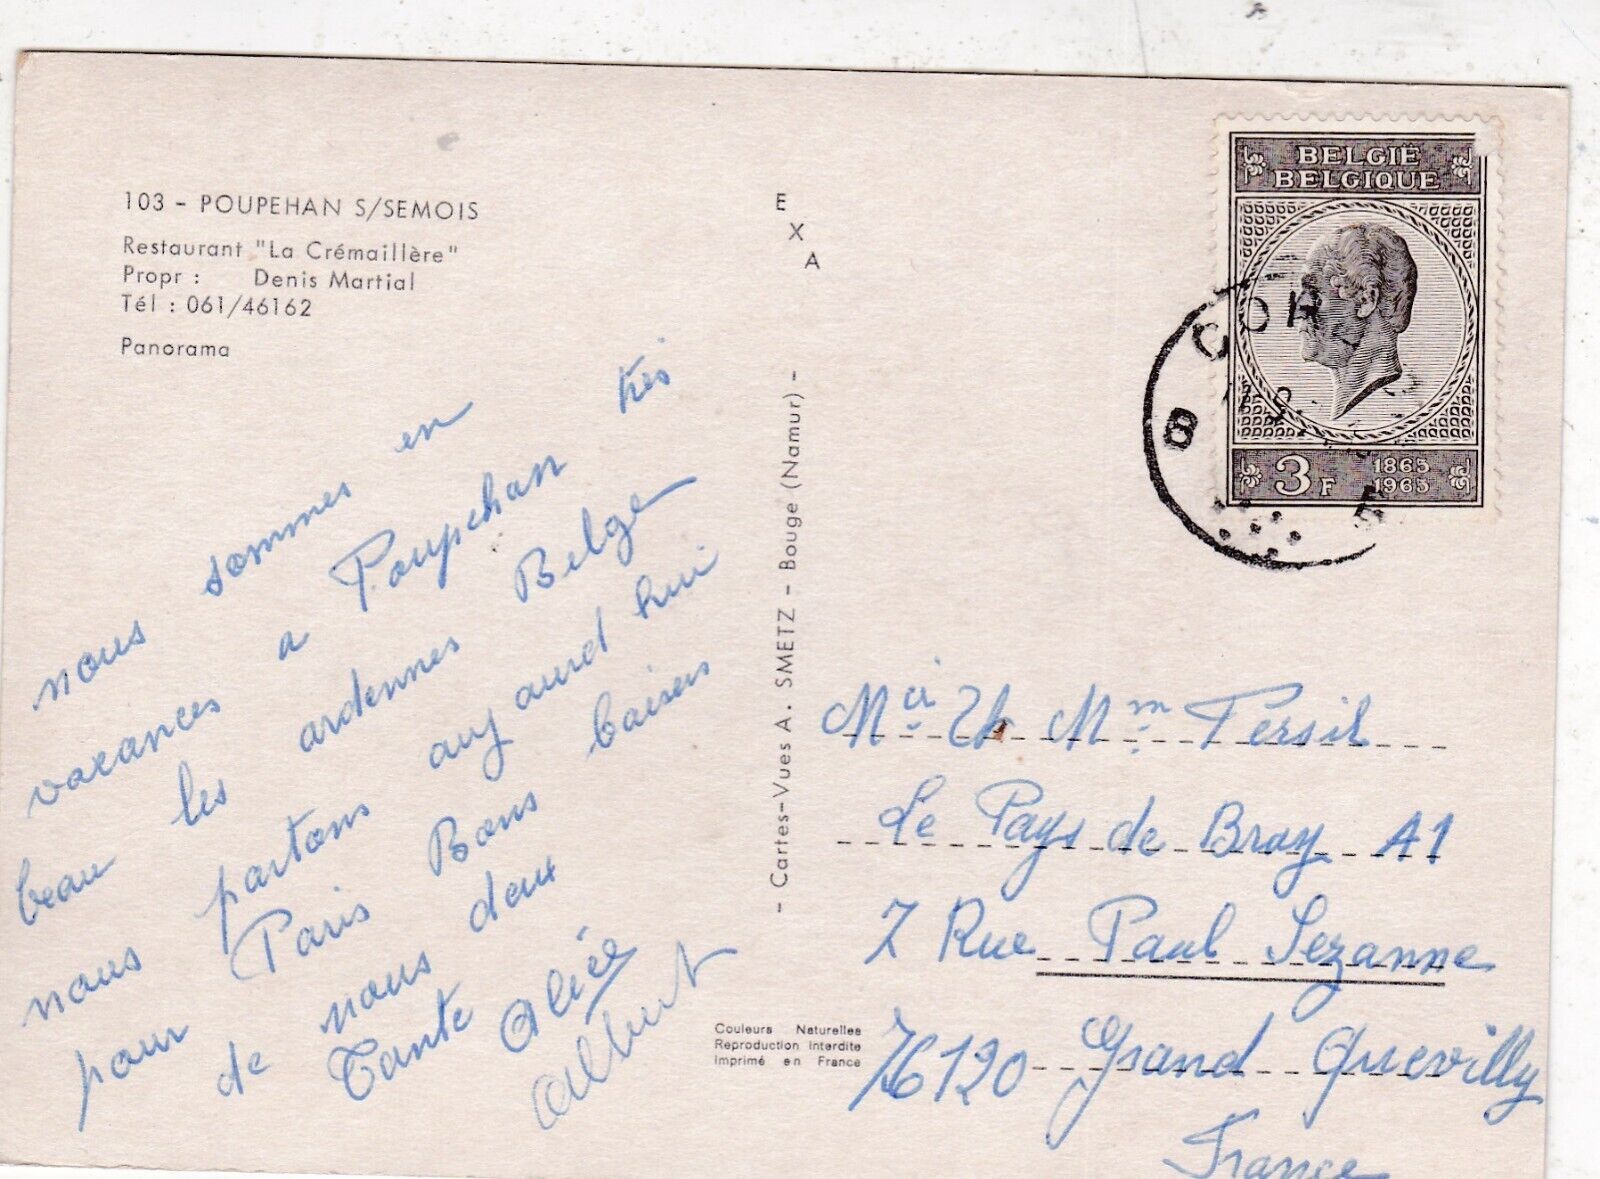 103 - POUPEHAN S/SEMOIS
Restaurant "La Crémaillère"
Propr : Denis Martial
Tél : 061/46162
Panorama
nous sommes en
vacances a Poupehan très
beau les ardennes Belge
nous partons auj aurd hui
pour Paris Bons baisers
de nous deux
Tante Alice
Albert
E
X
A
- Cartes-Vues A. SMETZ - Bouge (Namur) -
Couleurs Naturelles
Reproduction Interdite
Imprimé en France
BELGIË
BELGIQUE
3F 1865
1965
COR
B
Mm Persil
Le Pays de Bray A1
7 Rue Paul Sezanne
76120 Grand Quevilly
France